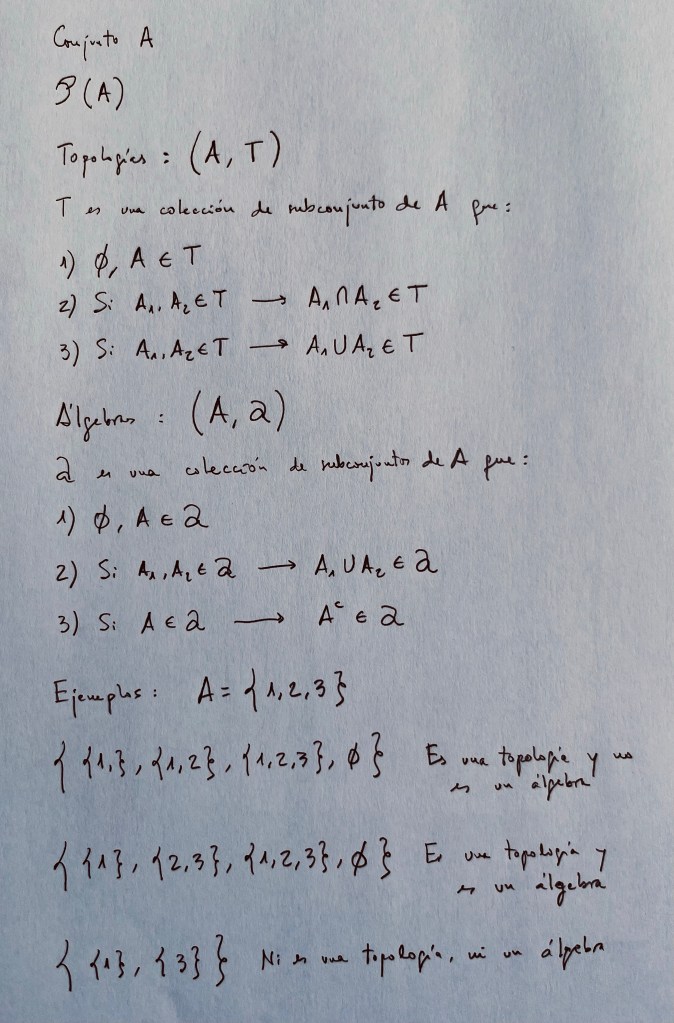 Conjunto A
P(A)
Topologías : (A, T)
T es una colección de subconjunto de A que:
1) ∅, A ∈ T
2) Si A₁, A₂ ∈ T → A₁ ∩ A₂ ∈ T
3) Si A₁, A₂ ∈ T → A₁ ∪ A₂ ∈ T
Álgebras : (A, a)
a es una colección de subconjuntos de A que:
1) ∅, A ∈ a
2) Si A₁, A₂ ∈ a → A₁ ∪ A₂ ∈ a
3) Si A ∈ a → Aᶜ ∈ a
Ejemplos: A = {1, 2, 3}
{ {1,}, {1,2}, {1,2,3}, ∅ } Es una topología y no
es un álgebra
{ {1}, {2,3}, {1,2,3}, ∅ } Es una topología y
es un álgebra
{ {1}, {3} } Ni es una topología, ni un álgebra